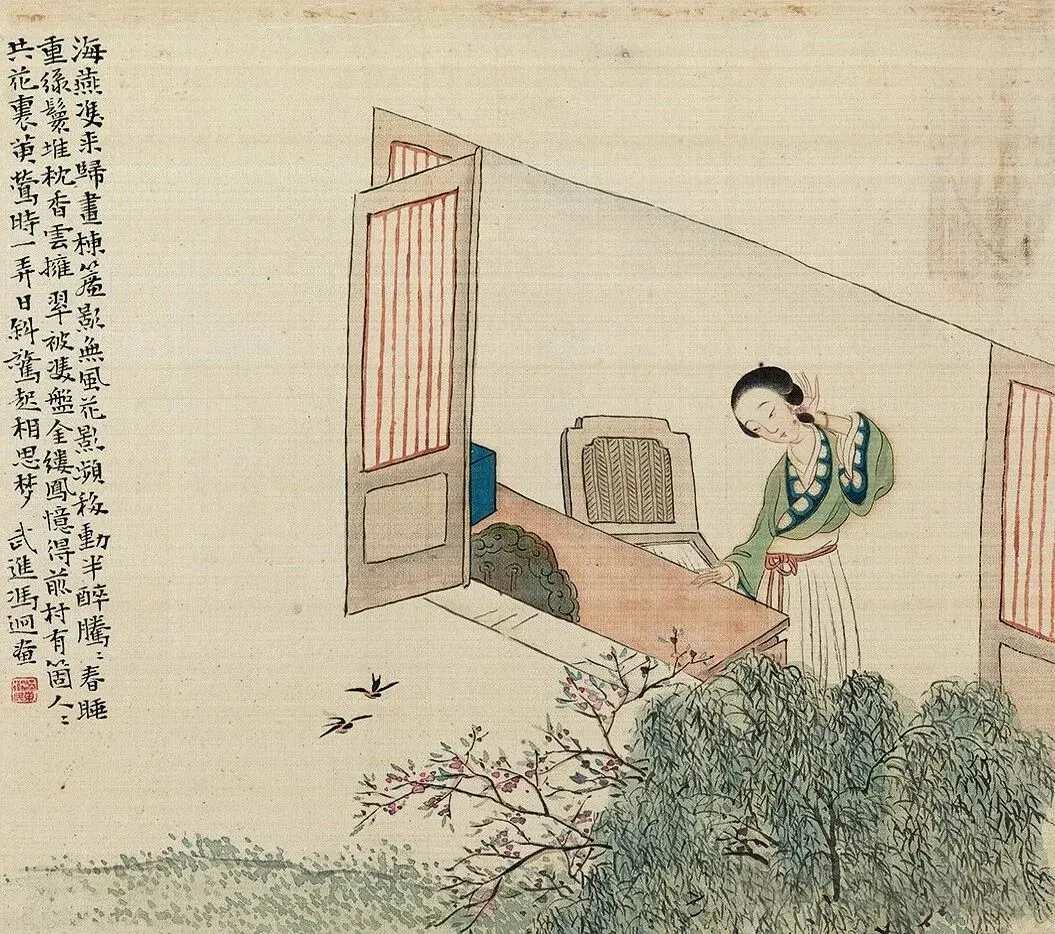 海燕雙来歸畫棟簾影無風花影頻移動半醉騰〻春睡
重綠鬟堆枕香雲擁翠被雙盤金縷鳳憶得前村有箇人〻
共花裏黄鶯時一弄日斜驚起相思梦 武進馮迥畫